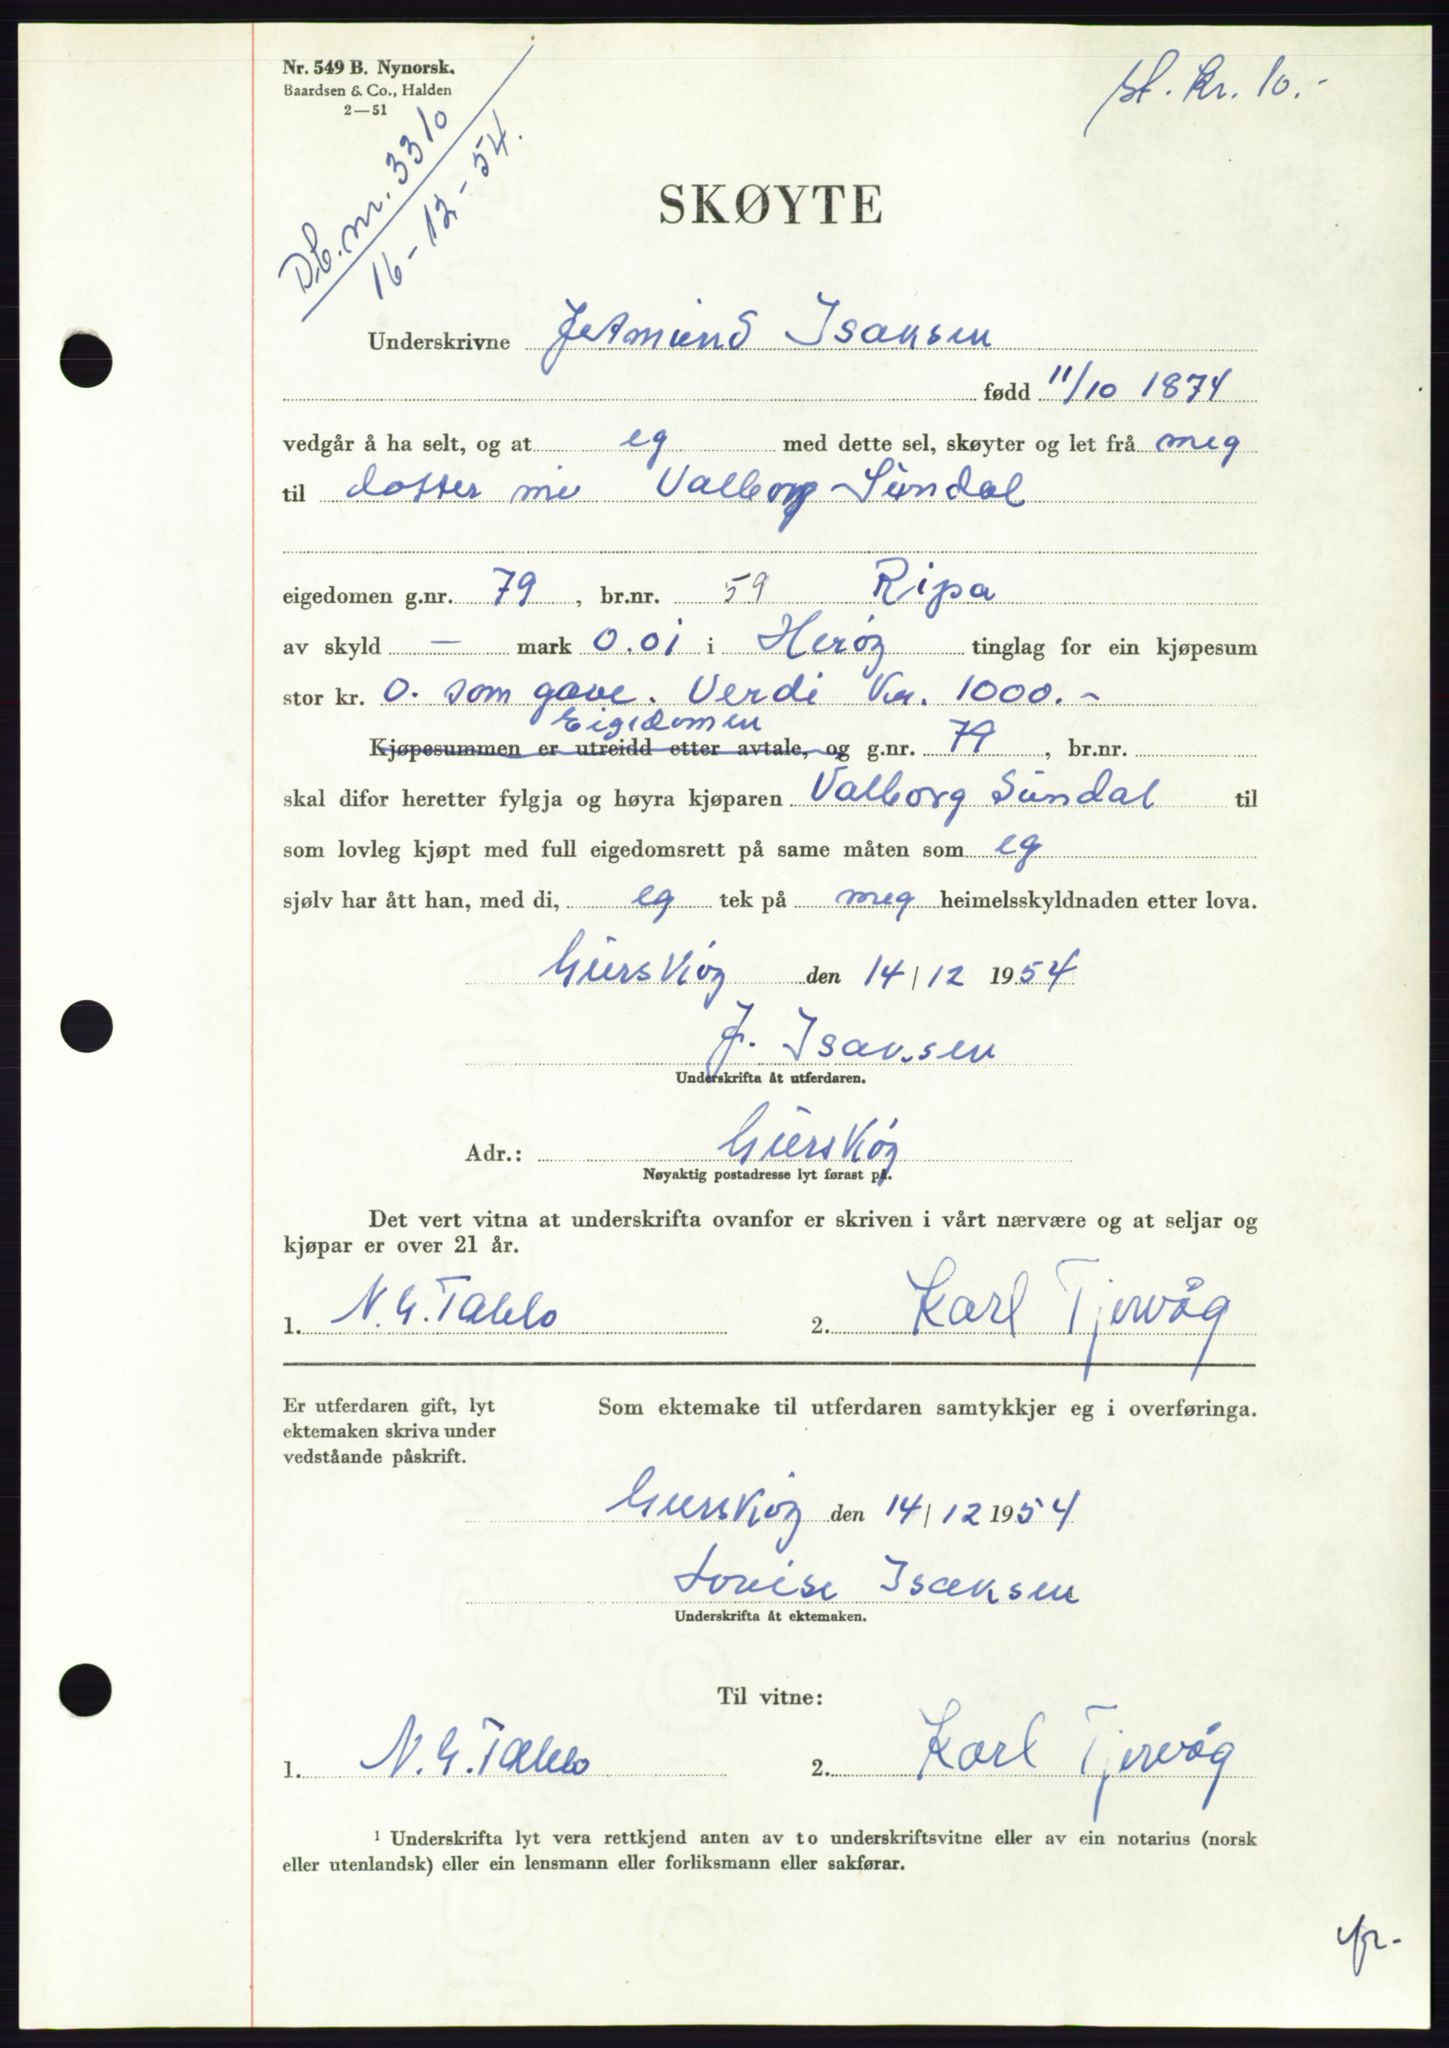 Nr. 549 B. Nynorsk.
Baardsen & Co., Halden
2—51
st. kr. 10.-
Db. nr. 3310
16-12-54.
SKØYTE
Underskrivne Jetmund Isaksen
fødd 11/10 1874
vedgår å ha selt, og at eg med dette sel, skøyter og let frå meg
til dotter mi Valborg Sundal
eigedomen g.nr. 79, br.nr. 59 Ripa
av skyld — mark 0.01 i Herøy tinglag for ein kjøpesum
stor kr. 0. som gave. Verdi Kr. 1000.-
Eigedomen
Kjøpesummen er utreidd etter avtale, og g.nr. 79, br.nr.
skal difor heretter fylgja og høyra kjøparen Valborg Sundal til
som lovleg kjøpt med full eigedomsrett på same måten som eg
sjølv har ått han, med di, eg tek på meg heimelsskyldnaden etter lova.
Gurskøy den 14/12 1954
J. Isaksen
Underskrifta åt utferdaren.
Adr.: Gurskøy
Nøyaktig postadresse lyt førast på.
Det vert vitna at underskrifta ovanfor er skriven i vårt nærvære og at seljar og
kjøpar er over 21 år.
1. N. G. Tablo 2. Karl Tjervåg
Er utferdaren gift, lyt
ektemaken skriva under
vedståande påskrift.
Som ektemake til utferdaren samtykkjer eg i overføringa.
Gurskøy den 14/12 1954
Louise Isaksen
Underskrifta åt ektemaken.
Til vitne:
1. N. G. Tablo 2. Karl Tjervåg
1 Underskrifta lyt vera rettkjend anten av to underskriftsvitne eller av ein notarius (norsk
eller utenlandsk) eller ein lensmann eller forliksmann eller sakførar.